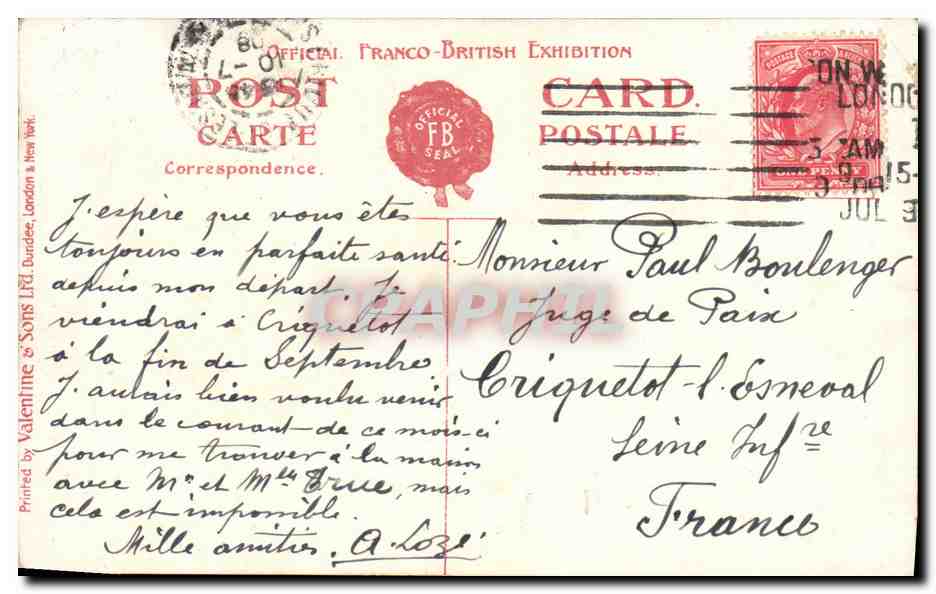 OFFICIAL FRANCO-BRITISH EXHIBITION
POST CARD.
CARTE POSTALE
Correspondence. Address.
OFFICIAL
FB
SEAL
POSTAGE
ONE PENNY
LOND
3 AM
JUL 3
08
10 - 7
Printed by Valentine & Sons Ltd. Dundee, London & New York.
J'espère que vous êtes
toujours en parfaite santé
depuis mon départ. Je
viendrai à Criquetot
à la fin de Septembre
J'aurais bien voulu venir
dans le courant de ce mois-ci
pour me trouver à la maison
avec Mr et Mlle True, mais
cela est impossible.
Mille amitiés, A. Lozé
Monsieur Paul Boulenger
Juge de Paix
Criquetot-l'Esneval
Seine Infre
France
CPAPHIL